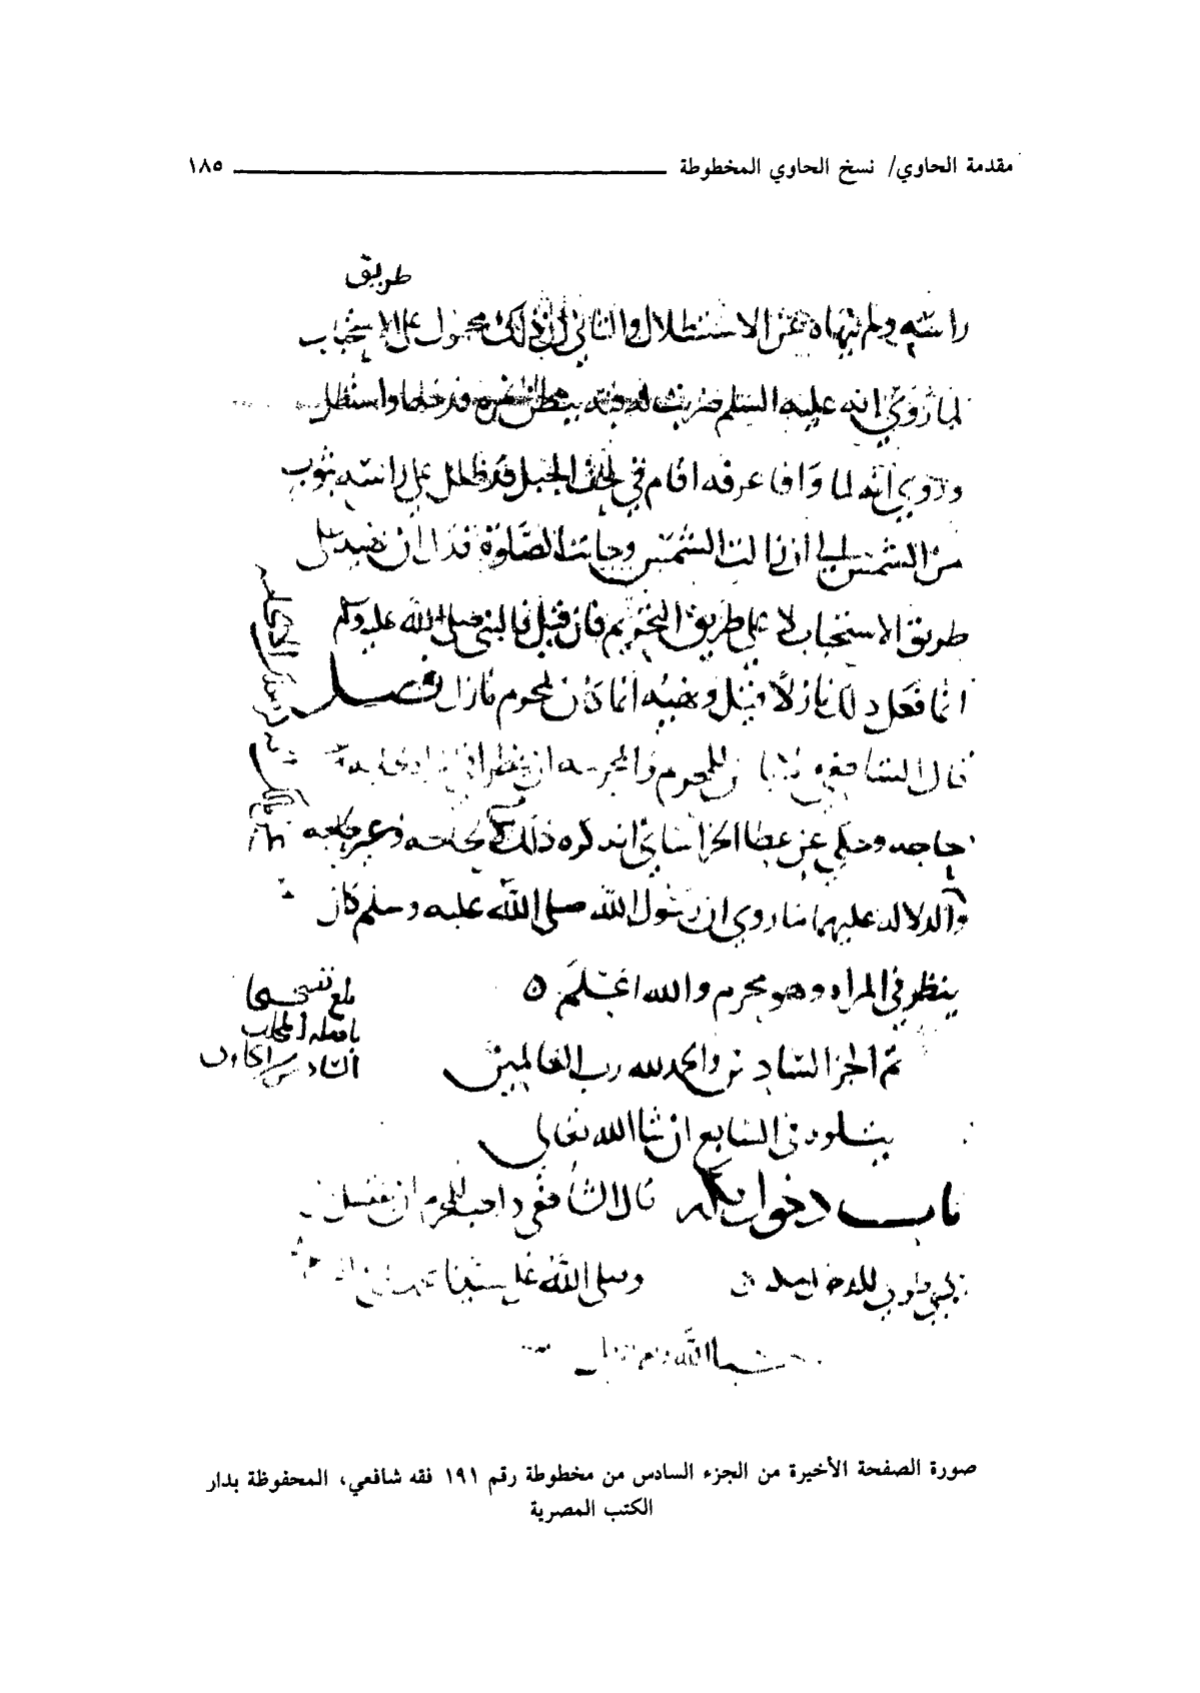 مقدمة الحاوي/ نسخ الحاوي المخطوطة ١٨٥
طريق
راسه ولم ينهاه عن الاستظلال والثاني ان ذلك محمول على الاستحباب
لما روي انه عليه السلم ضربت له قبة فدخلها واستظل
وروي انه لما وافا عرفه اقام في الجبل قد ظلل على راسه بثوب
من الشمس الى ان زالت الشمس وجات الصلوة فدل ان نهيه على
طريق الاستحباب لا على طريق التحريم فان قيل فالنبي صلى الله عليه وسلم
انما فعل ذلك نازلا قيل ونهيه انما كان لمحرم نازل فصل
قال الشافعي للمحرم والمحرمه ان ينظرا في
حاجه وحكي عن عطا الخراساني انه كره ذلك لحاجه وغير حاجه
والدلاله عليهما ما روي ان رسول الله صلى الله عليه وسلم كان
ينظر في المراه وهو محرم والله اعلم ٥
بلغ
تم الجز السادس والحمد لله رب العالمين
يتلوه في السابع ان شا الله تعالى
باب دخول مكة قال الشافعي واحب للمحرم ان يغتسل
وصلى الله على سيدنا محمد
حسبنا الله ونعم الوكيل
صورة الصفحة الأخيرة من الجزء السادس من مخطوطة رقم ١٩١ فقه شافعي، المحفوظة بدار
الكتب المصرية